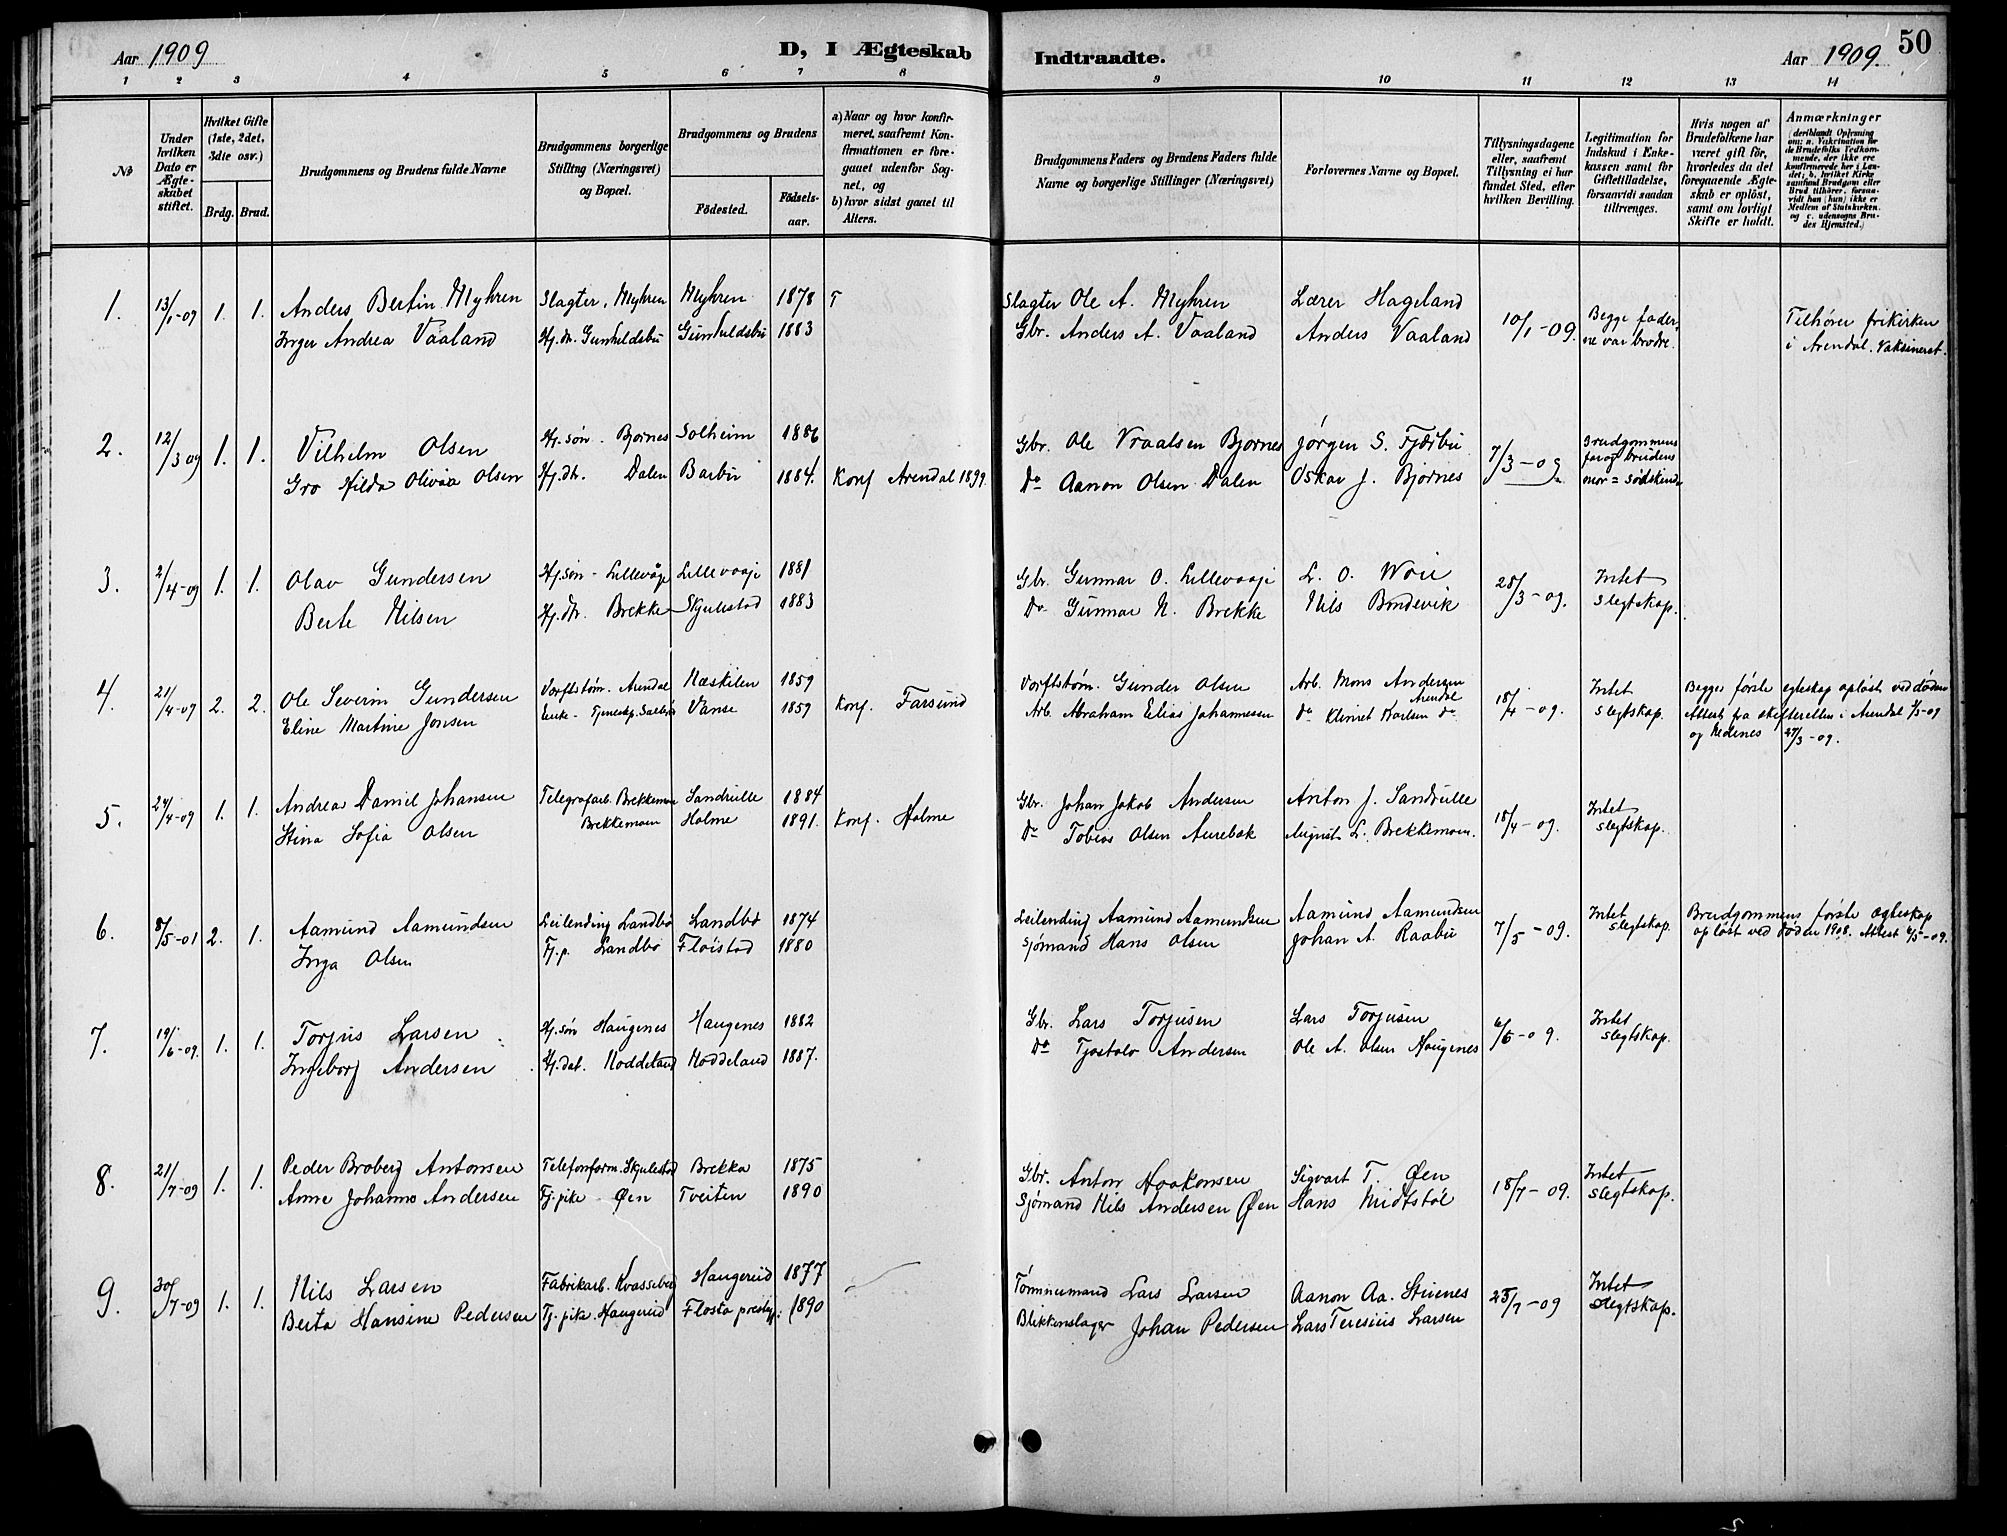 Aar 1909
D, I Ægteskab
Indtraadte.
Aar 1909.
50
1 2 3 4 5 6 7 8 9 10 11 12 13 14
No
Under hvilken Dato er Ægteskabet stiftet.
Hvilket Gifte (1ste, 2det, 3die osv.)
Brdg. Brud.
Brudgommens og Brudens fulde Navne
Brudgommens borgerlige Stilling (Næringsvei) og Bopæl.
Brudgommens og Brudens
Födested.
Födsels-aar.
a) Naar og hvor konfirmeret, saafremt Konfirmationen er foregaaet udenfor Sognet, og
b) hvor sidst gaaet til Alters.
Brudgommens Faders og Brudens Faders fulde Navne og borgerlige Stillinger (Næringsvei)
Forlovernes Navne og Bopæl.
Tillysningsdagene eller, saafremt Tillysning ei har fundet Sted, efter hvilken Bevilling.
Legitimation for Indskud i Enkekassen samt for Giftetilladelse, forsaavidt saadan tiltrænges.
Hvis nogen af Brudefolkene har været gift för, hvorledes da det foregaaende Ægteskab er oplöst, samt om lovligt Skifte er holdt.
Anmærkninger
(deriblandt Oplysning om: a. Vakcination for de Brudefolks Vedkommende, der ikke ere konfirmerede her i Landet; b. hvilket Kirkesamfund Brudgom eller Brud tilhører, forsaavidt han (hun) ikke er Medlem af Statskirken. og c. udensogns Brudes Hjemsted.)
1. 13/1-09 1. 1. Anders Bertin Myhren Slagter, Myhren Myhren 1878 T Slagter Ole A. Myhren Lærer Hageland 10/1-09. Begge fader- Tilhører frikirken
Inger Andrea Vaaland Hj. dr. Gunhildsbu Gunhildsbu 1883 Gbr. Anders A. Vaaland Anders Vaaland ne var brødre. i Arendal. Vaksineret.
2. 12/3 09 1. 1. Vilhelm Olsen Hj. søn. Bjørnes Solheim 1886 Gbr. Ole Vraalsen Bjornes Jørgen S. Fjærbu 7/3-09 Brudgommens
Gro Hilda Olivia Olsen Hj. dr. Dalen Barbu 1884. Konf Arendal 1899 Do Aanon Olsen Dalen Oskar J. Bjornes far og brudens
mor = sødskende
3. 2/4-09 1. 1. Olav Gundersen Hj. søn - Lillevaje Lillevaaje 1881 Gbr. Gunnar O. Lillevaaje L. O. Woie 28/3-09. Intet
Berte Nilsen Hj. dr. Brekke Skjulestad 1883 Do Gunnar N. Brekke Nils Bondevik slegtskap.
4. 21/4-09 2. 2. Ole Severin Gundersen Verftstøm. Arendal Næskilen 1859 Verftstøm. Gunder Olsen Arb. Mons Andersen Arendal 18/4-09. Intet Begges første egteskap opløst ved døden
Eline Martine Jonsen Enke - Vanse 1859 Konf. Farsund Arb. Abraham Elias Johannesen do Karlsen do slegtskap. Attest fra skifteretten i Arendal 1/5-09
og Nedenes 27/3-09.
5. 24/4-09 1. 1. Andreas Daniel Johansen Telegrafarb. Brekkemoen Sandrulle 1884 Gbr. Johan Jakob Andersen Anton J. Sandrulle 18/4-09. Intet
Stina Sofia Olsen Brekkemoen Holme 1891. Konf. Holme Do Tobias Olsen Aurebak August L. Brekkemoen. slegtskap.
6. 8/5-01 2. 1. Aamund Aamundsen Leilending Landbø Landbø 1874 Leilending Aamund Aamundsen Aamund Aamundsen 7/5-09. Intet Brudgommens første egteskap
Inga Olsen Tj. p. Landbø Fløistad 1880 Sjømand Hans Olsen Johan A. Raabu slegtskap. opløst ved døden 1908. Attest 4/5-09.
7. 19/6-09. 1. 1. Torjus Larsen Hj. søn Haugenes Haugenes 1882 Gbr. Lars Torjusen Lars Torjusen 6/6-09. Intet
Ingeborg Andersen Hj. dat. Noddeland Noddeland 1887. Do Tjøstolv Andersen Ole A. Olsen Haugenes slegtskap.
8. 21/7-09 1. 1. Peder Broberg Antonsen Telefonform. Skjulestad Brekka 1875 Gbr. Anton Haakonsen Sigvart T. Øen 18/7-09. Intet
Anne Johanna Andersen Tj. pike Øen Tveiten 1890 Sjømand Nils Andersen Øen Hans Midtstøl slegtskap.
9. 30/7-09 1. 1. Nils Larsen Fabrikarb. Haugereid 1877 Tømmermand Lars Larsen Aanon Aa. Stienes 25/7-09 Intet
Berta Hansine Pedersen Tj. pike. Haugereid Flosta prestgj: 1890 Blikkenslager Johan Pedersen Lars Teresius Larsen slegtskap.